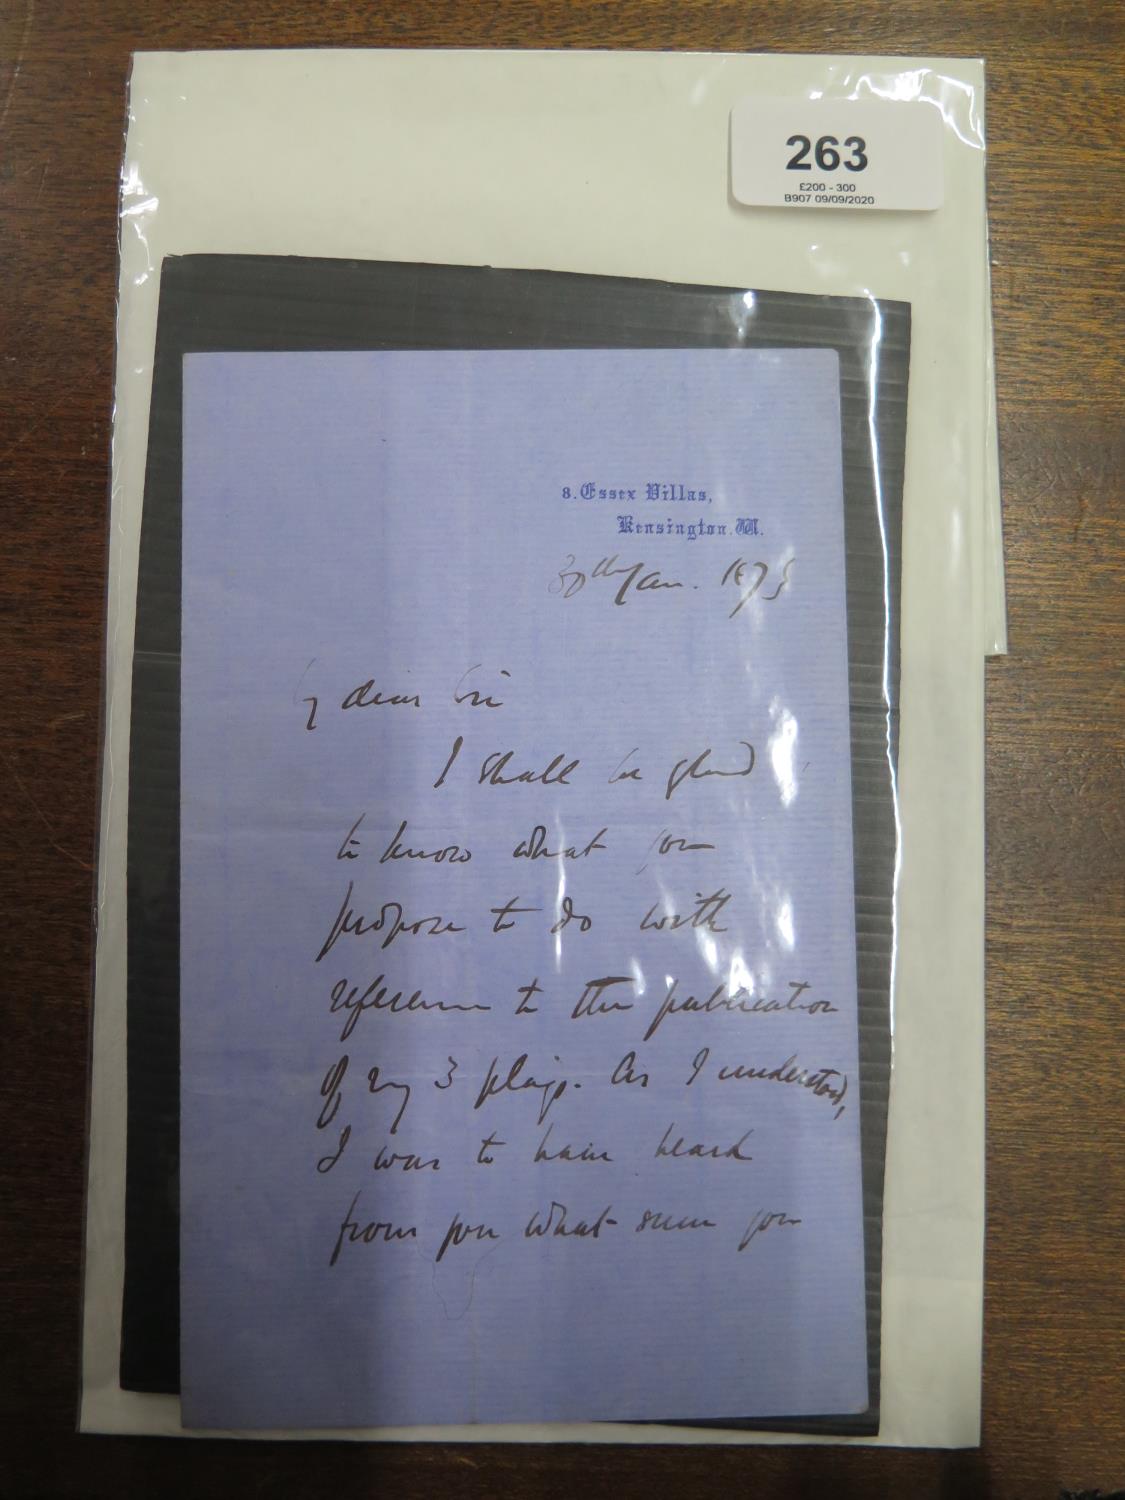 263
£200 - 300
B907 09/09/2020
8. Essex Villas,
Kensington. W.
30th Jan. 1873
My dear Sir
I shall be glad
to know what you
propose to do with
reference to the publication
of my 3 plays. As I understood,
I was to have heard
from you what sum you